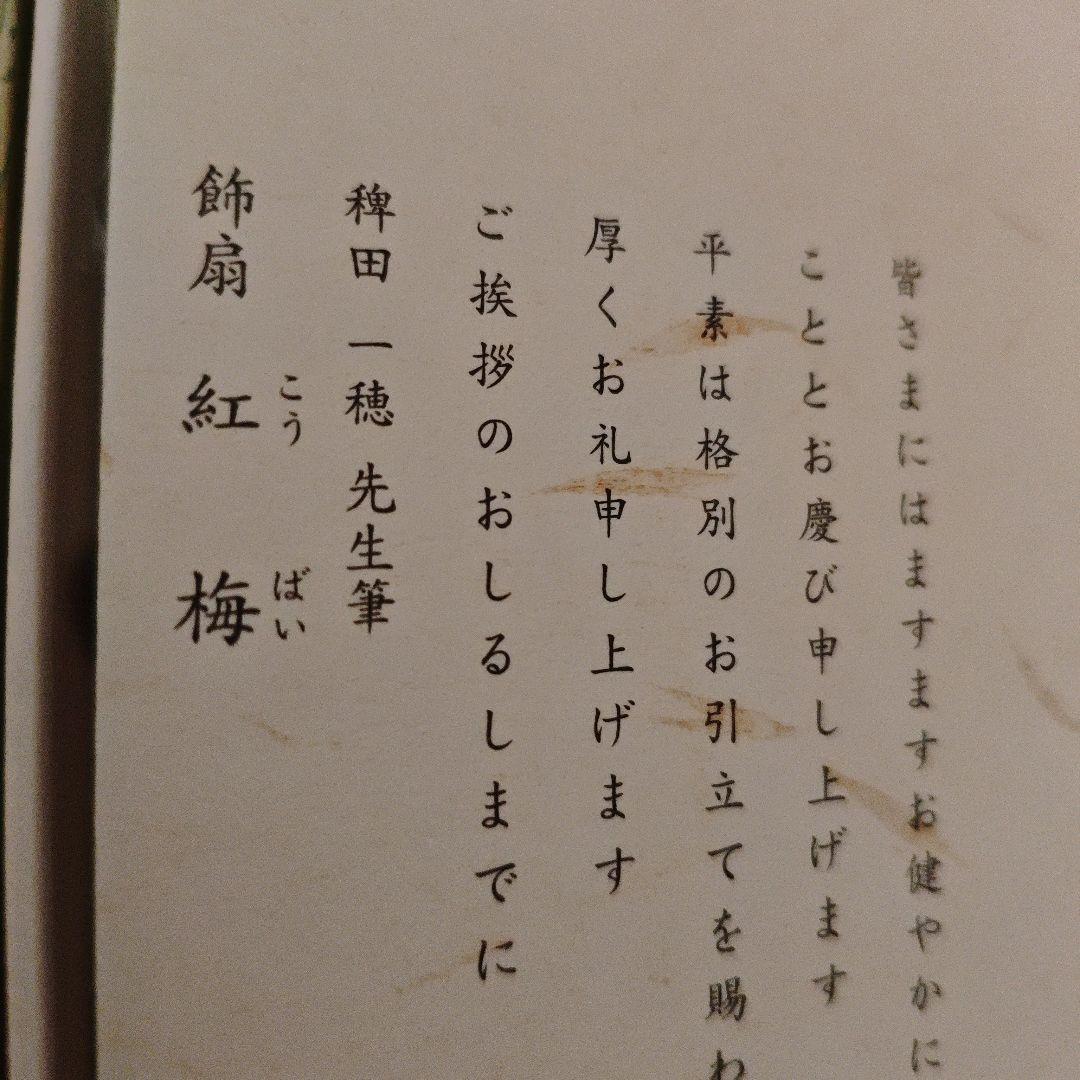 皆さまにはますますお健やかに
こととお慶び申し上げます
平素は格別のお引立てを賜わ
厚くお礼申し上げます
ご挨拶のおしるしまでに
稗田 一穂 先生筆
飾扇 紅梅
こう ばい